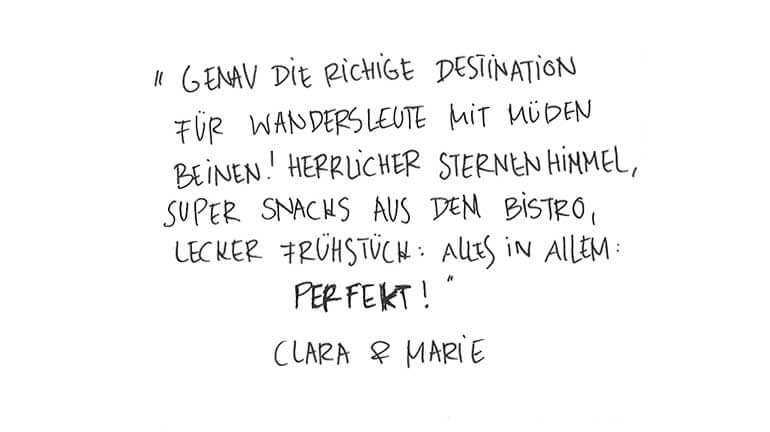 " GENAU DIE RICHIGE DESTINATION
FÜR WANDERSLEUTE MIT MÜDEN
BEINEN! HERRLICHER STERNENHIMMEL,
SUPER SNACKS AUS DEM BISTRO,
LECKER FRÜHSTÜCK: ALLES IN ALLEM:
PERFEKT! "
CLARA & MARIE